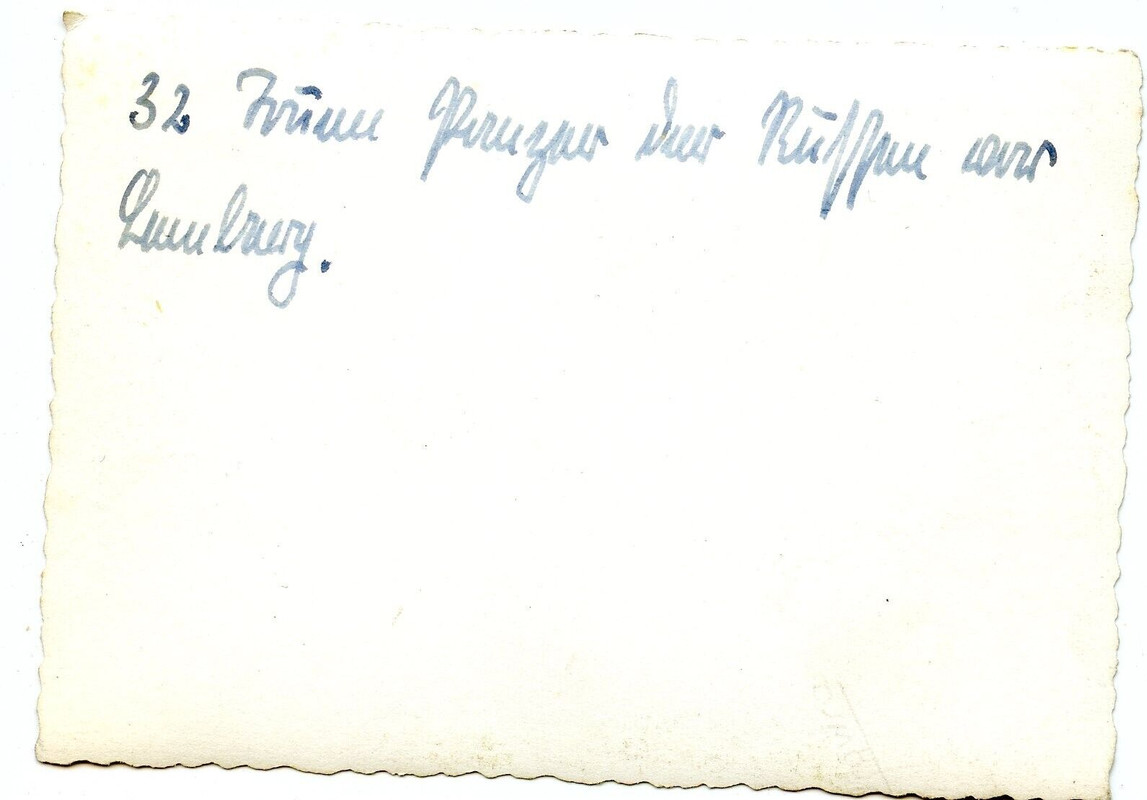 32 Tonnen Panzer der Russen vor
Lemberg.